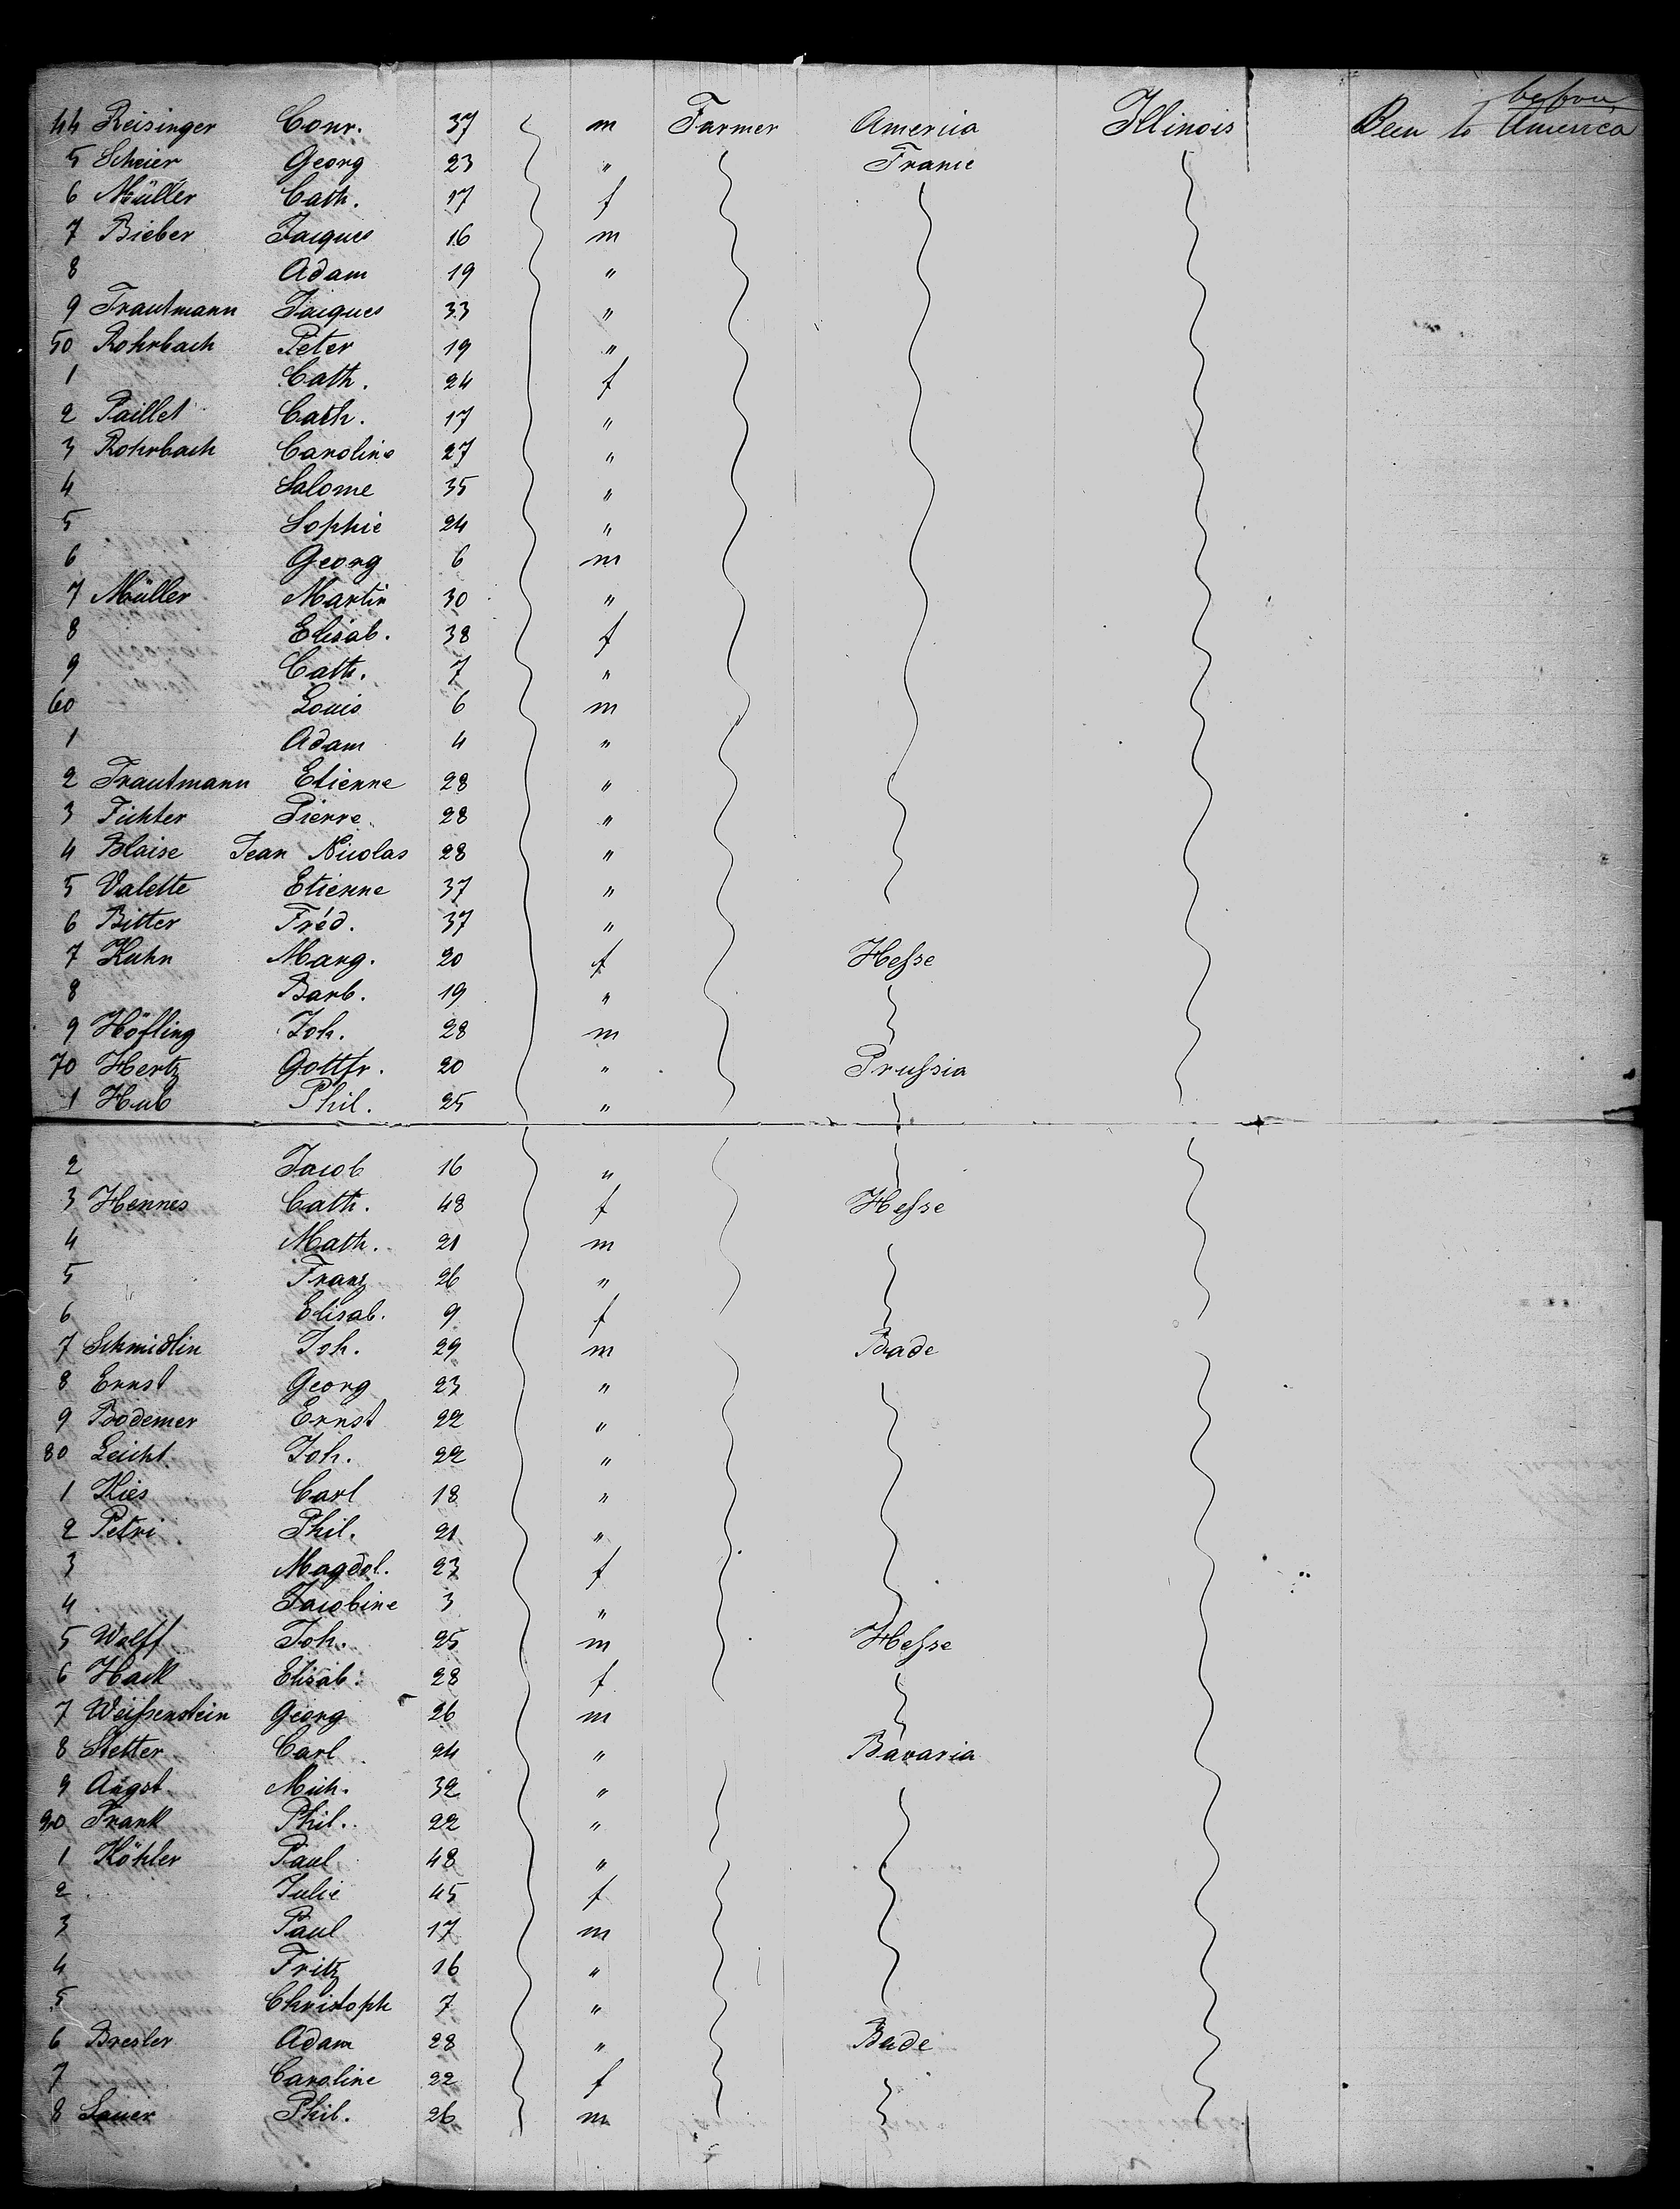 before
44 Reisinger Conr. 37 m Farmer America Illinois Been to America
5 Scheier Georg 23 " France
6 Müller Cath. 17 f
7 Bieber Jacques 16 m
8 Adam 19 "
9 Trautmann Jacques 33 "
50 Rohrbach Peter 19 "
1 Cath. 24 f
2 Paillet Cath. 17 "
3 Rohrbach Caroline 27 "
4 Salome 35 "
5 Sophie 24 "
6 Georg 6 m
7 Müller Martin 30 "
8 Elisab. 38 f
9 Cath. 7 "
60 Louis 6 m
1 Adam 4 "
2 Trautmann Etienne 28 "
3 Fichter Pierre 28 "
4 Blaise Jean Nicolas 28 "
5 Valette Etienne 37 "
6 Bitter Fréd. 37 "
7 Kuhn Marg. 20 f Hesse
8 Barb. 19 "
9 Höfling Joh. 28 m
70 Hertz Gottfr. 20 " Prussia
1 Hub Phil. 25 "
2 Jacob 16 "
3 Hennes Cath. 48 f Hesse
4 Math. 21 m
5 Franz 26 "
6 Elisab. 9 f
7 Schmidlin Joh. 29 m Bade
8 Ernst Georg 23 "
9 Bodemer Ernst 22 "
80 Leicht Joh. 22 "
1 Kies Carl 18 "
2 Petri Phil. 21 "
3 Magdal. 23 f
4 Jacobine 3 "
5 Wolff Joh. 25 m Hesse
6 Hack Elisab. 28 f
7 Weissenstein Georg 26 m
8 Stetter Carl 24 " Bavaria
9 Angst Mich. 32 "
90 Frank Phil. 22 "
1 Köhler Paul 48 "
2 Julie 45 f
3 Paul 17 m
4 Fritz 16 "
5 Christoph 7 "
6 Bresler Adam 28 " Bade
7 Caroline 22 f
8 Sauer Phil. 26 m